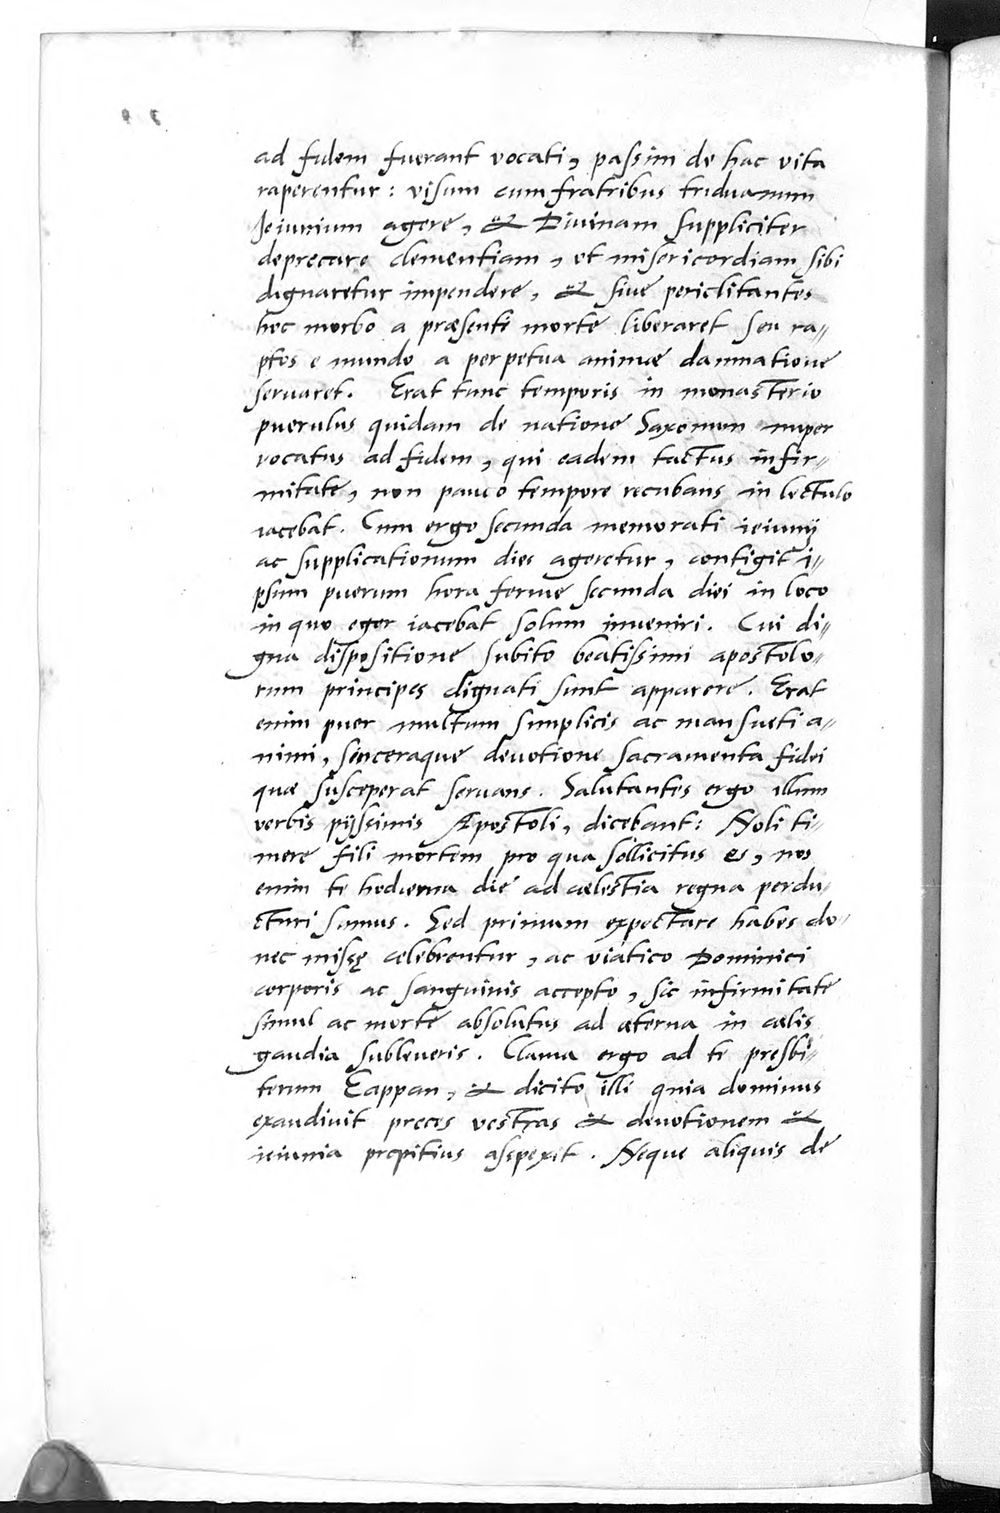 ad fidem fuerant vocati, passim de hac vita
raperentur: visum cum fratribus triduanum
Jeiunium agere, & Divinam suppliciter
deprecare clementiam, ut misericordiam sibi
dignaretur impendere, & sive periclitantes
hoc morbo a præsenti morte liberaret seu ra-
ptos e mundo a perpetua animæ damnatione
servaret. Erat tunc temporis in monasterio
puerulus quidam de natione Saxonum nuper
vocatus ad fidem, qui eadem tactus infir-
mitate, non pauco tempore recubans in lectulo
iacebat. Cum ergo secunda memorati ieiunij
ac supplicationum dies ageretur, contigit i-
psum puerum hora ferme secunda diei in loco
in quo eger iacebat solum inveniri. Cui di-
gna dispositione subito beatissimi apostolo-
rum principes dignati sunt apparere. Erat
enim puer multum simplicis ac mansueti a-
nimi, sinceraque devotione sacramenta fidei
quæ susceperat servans. Salutantes ergo illum
verbis pijssimis Apostoli, dicebant: Noli ti-
mere fili mortem pro qua sollicitus es, nos
enim te hodierna die ad cælestia regna perdu-
cturi sumus. Sed primum expectare habes do-
nec missę celebrentur, ac viatico Dominici
corporis ac sanguinis accepto, sic infirmitate
simul ac morte absolutus ad æterna in cælis
gaudia subleveris. Clama ergo ad te presbi-
terum Eappan, & dicito illi quia dominus
exaudivit preces vestras & devotionem &
ieiunia propitius aspexit. Neque aliquis de